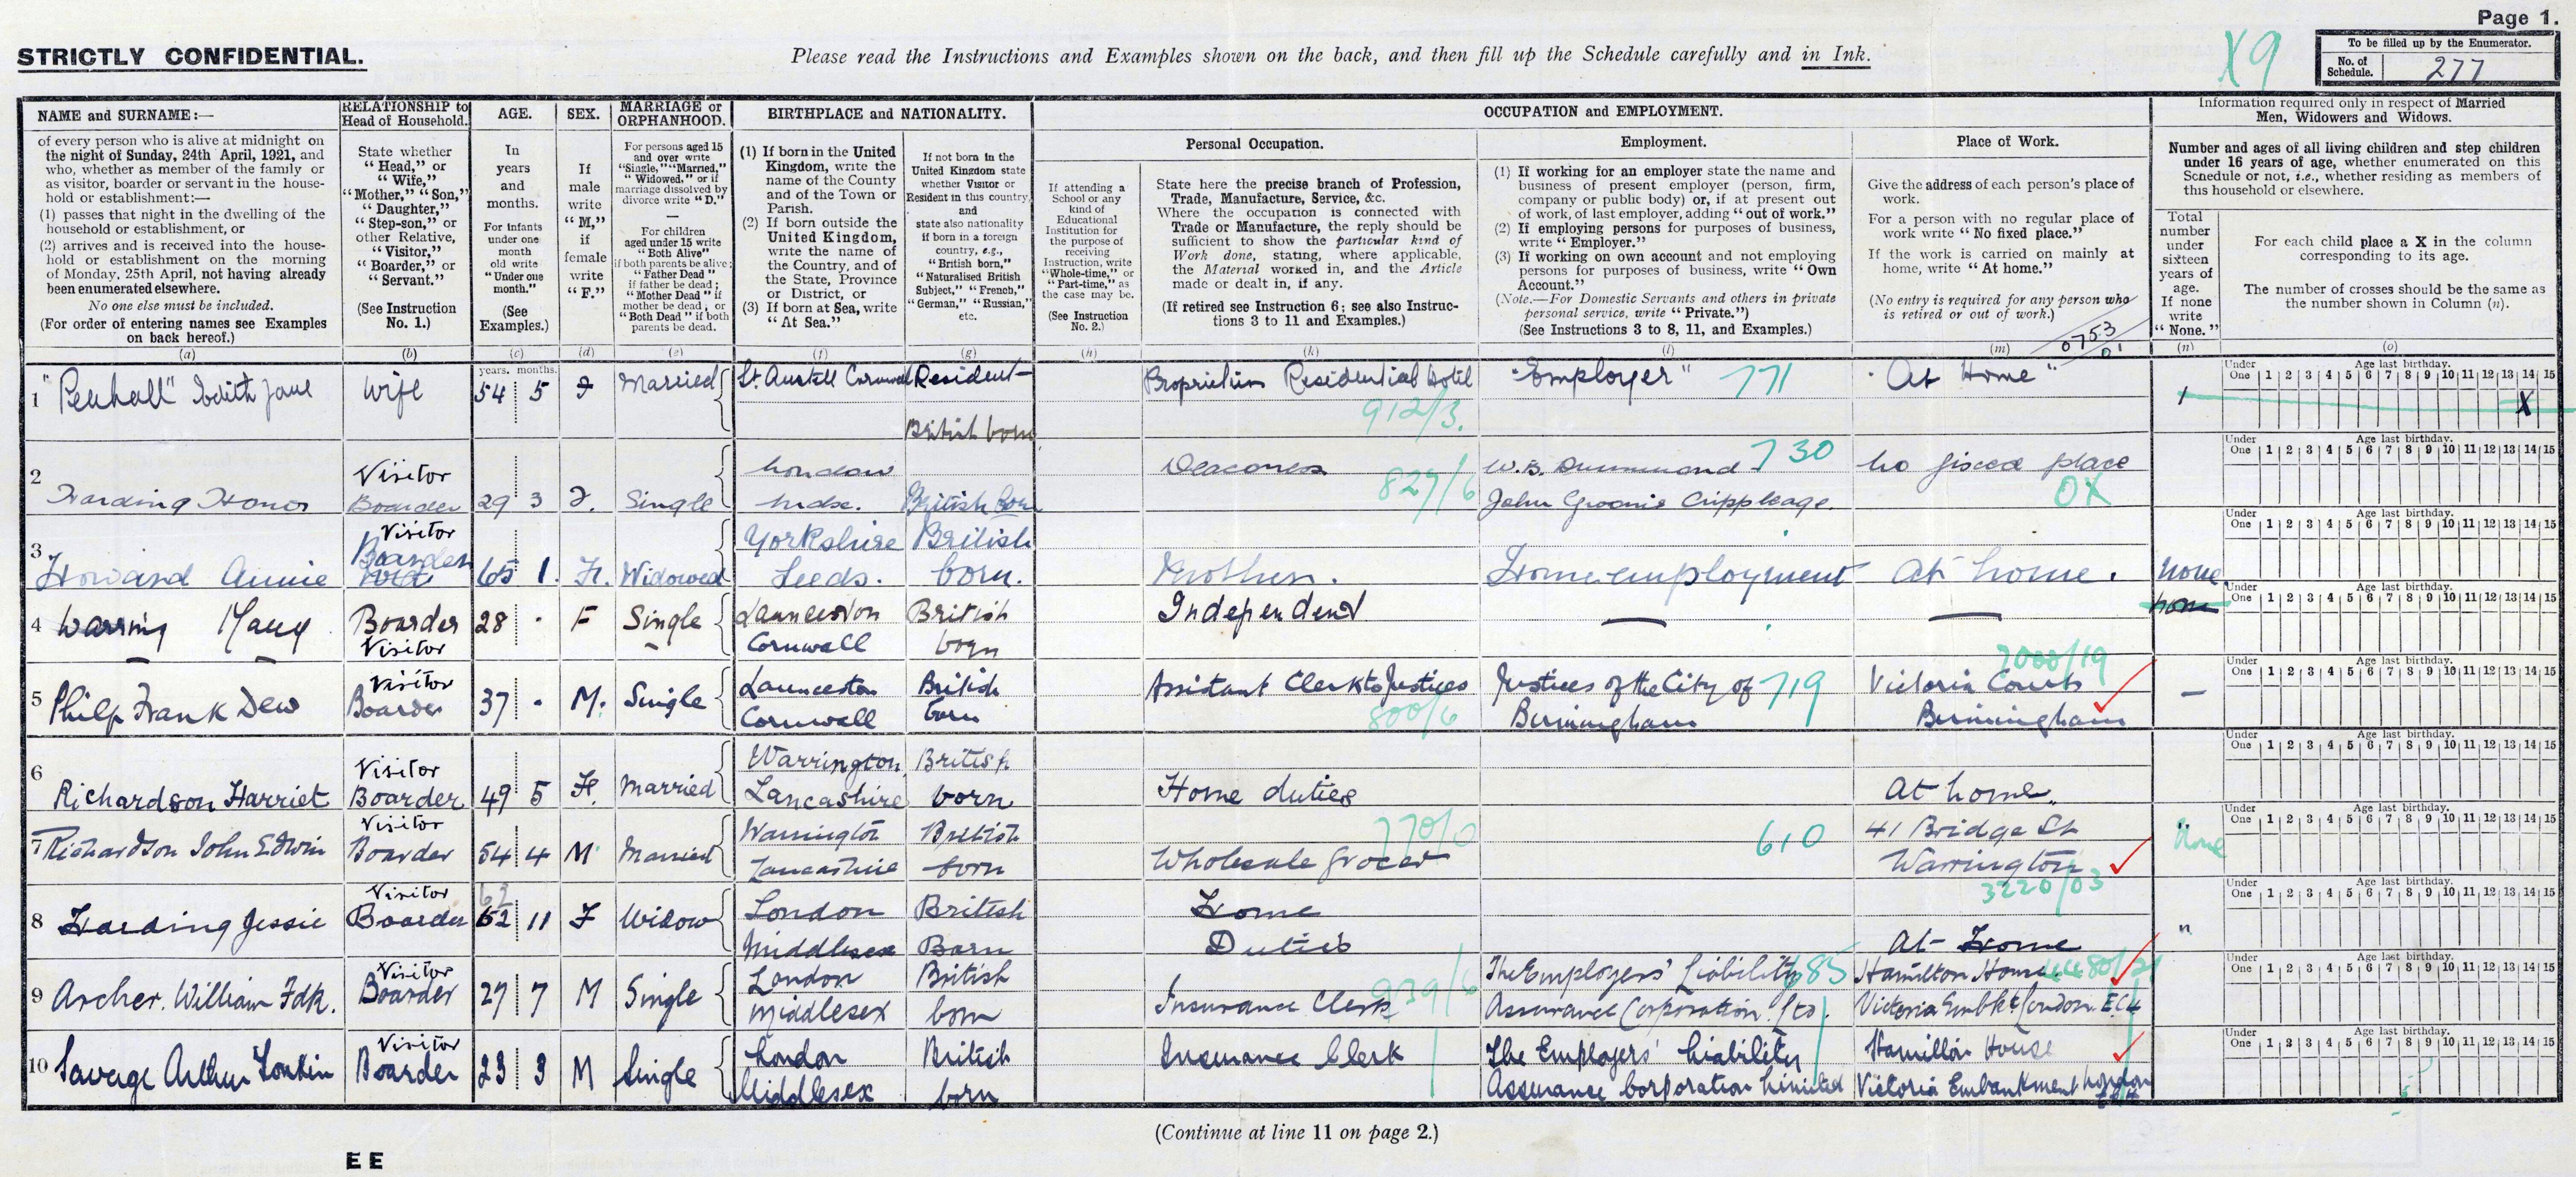 Page 1.
STRICTLY CONFIDENTIAL.
Please read the Instructions and Examples shown on the back, and then fill up the Schedule carefully and in Ink.
X9
To be filled up by the Enumerator.
No. of Schedule. 277
NAME and SURNAME:—
of every person who is alive at midnight on
the night of Sunday, 24th April, 1921, and
who, whether as member of the family or
as visitor, boarder or servant in the house-
hold or establishment:—
(1) passes that night in the dwelling of the
household or establishment, or
(2) arrives and is received into the house-
hold or establishment on the morning
of Monday, 25th April, not having already
been enumerated elsewhere.
No one else must be included.
(For order of entering names see Examples
on back hereof.)
(a)
RELATIONSHIP to
Head of Household.
State whether
"Head," or
"Wife,"
"Mother," "Son,"
"Daughter,"
"Step-son," or
other Relative,
"Visitor,"
"Boarder," or
"Servant."
(See Instruction
No. 1.)
(b)
AGE.
In
years
and
months.
For infants
under one
month
old write
"Under one
month."
(See
Examples.)
(c)
SEX.
If
male
write
"M,"
if
female
write
"F."
(d)
MARRIAGE or
ORPHANHOOD.
For persons aged 15
and over write
"Single," "Married,"
"Widowed," or if
marriage dissolved by
divorce write "D."
—
For children
aged under 15 write
"Both Alive"
if both parents be alive;
"Father Dead"
if father be dead;
"Mother Dead" if
mother be dead; or
"Both Dead" if both
parents be dead.
(e)
BIRTHPLACE and NATIONALITY.
(1) If born in the United
Kingdom, write the
name of the County
and of the Town or
Parish.
(2) If born outside the
United Kingdom,
write the name of
the Country, and of
the State, Province
or District, or
(3) If born at Sea, write
"At Sea."
(f)
If not born in the
United Kingdom state
whether Visitor or
Resident in this country,
and
state also nationality
if born in a foreign
country, e.g.,
"British born,"
"Naturalised British
Subject," "French,"
"German," "Russian,"
etc.
(g)
OCCUPATION and EMPLOYMENT.
Personal Occupation.
If attending a
School or any
kind of
Educational
Institution for
the purpose of
receiving
Instruction, write
"Whole-time," or
"Part-time," as
the case may be.
(See Instruction
No. 2.)
(h)
State here the precise branch of Profession,
Trade, Manufacture, Service, &c.
Where the occupation is connected with
Trade or Manufacture, the reply should be
sufficient to show the particular kind of
Work done, stating, where applicable,
the Material worked in, and the Article
made or dealt in, if any.
(If retired see Instruction 6; see also Instruc-
tions 3 to 11 and Examples.)
(k)
Employment.
(1) If working for an employer state the name and
business of present employer (person, firm,
company or public body) or, if at present out
of work, of last employer, adding "out of work."
(2) If employing persons for purposes of business,
write "Employer."
(3) If working on own account and not employing
persons for purposes of business, write "Own
Account."
(Note.—For Domestic Servants and others in private
personal service, write "Private.")
(See Instructions 3 to 8, 11, and Examples.)
(l)
Place of Work.
Give the address of each person's place of
work.
For a person with no regular place of
work write "No fixed place."
If the work is carried on mainly at
home, write "At home."
(No entry is required for any person who
is retired or out of work.)
(m)
0753
01
Information required only in respect of Married
Men, Widowers and Widows.
Number and ages of all living children and step children
under 16 years of age, whether enumerated on this
Schedule or not, i.e., whether residing as members of
this household or elsewhere.
Total
number
under
sixteen
years of
age.
If none
write
"None."
(n)
For each child place a X in the column
corresponding to its age.
The number of crosses should be the same as
the number shown in Column (n).
(o)
years. months.
Under One Age last birthday. 1 2 3 4 5 6 7 8 9 10 11 12 13 14 15
1 "Penhall" Edith Jane Wife 54 5 F Married St. Austell Cornwall Resident British born Proprietress Residential Hotel 912/3. "Employer" 771 "At Home" 1 X
Under One Age last birthday. 1 2 3 4 5 6 7 8 9 10 11 12 13 14 15
2 Harding Honor Visitor Boarder 29 3 F. Single London Midx. British born Deaconess 827/6 W.B. Drummond 730 John Groom's Crippleage. No fixed place OX
Under One Age last birthday. 1 2 3 4 5 6 7 8 9 10 11 12 13 14 15
3 Howard Annie Visitor Boarder 65 1. F. Widowed Yorkshire Leeds. British born. Mother. Home employment At home. None
Under One Age last birthday. 1 2 3 4 5 6 7 8 9 10 11 12 13 14 15
4 Warring Mary Boarder Visitor 28 - F Single Launceston Cornwall British born Independent — — None
Under One Age last birthday. 1 2 3 4 5 6 7 8 9 10 11 12 13 14 15
5 Philp Frank Dew Visitor Boarder 37 - M. Single Launceston Cornwall British born Assistant Clerk to Justices 800/6 Justices of the City of Birmingham 719 7000/19 Victoria Courts Birmingham —
Under One Age last birthday. 1 2 3 4 5 6 7 8 9 10 11 12 13 14 15
6 Richardson Harriet Visitor Boarder 49 5 F. Married Warrington Lancashire British born Home duties At home
Under One Age last birthday. 1 2 3 4 5 6 7 8 9 10 11 12 13 14 15
7 Richardson John Edwin Visitor Boarder 54 4 M Married Warrington Lancashire British born 770/0 Wholesale Grocer 610 41 Bridge St Warrington 3220/03 None
Under One Age last birthday. 1 2 3 4 5 6 7 8 9 10 11 12 13 14 15
8 Harding Jessie Visitor Boarder 62 11 F Widow London Middlesex British Born Home Duties At Home "
Under One Age last birthday. 1 2 3 4 5 6 7 8 9 10 11 12 13 14 15
9 Archer. William Fdk. Visitor Boarder 27 7 M Single London Middlesex British born Insurance Clerk 939/6 The Employers' Liability Assurance Corporation Ltd. 685 Hamilton House Victoria Embkt London. EC4
Under One Age last birthday. 1 2 3 4 5 6 7 8 9 10 11 12 13 14 15
10 Savage Arthur Tonkin Visitor Boarder 23 3 M Single London Middlesex British born Insurance Clerk The Employers' Liability Assurance Corporation Limited Hamilton House Victoria Embankment London
(Continue at line 11 on page 2.)
EE